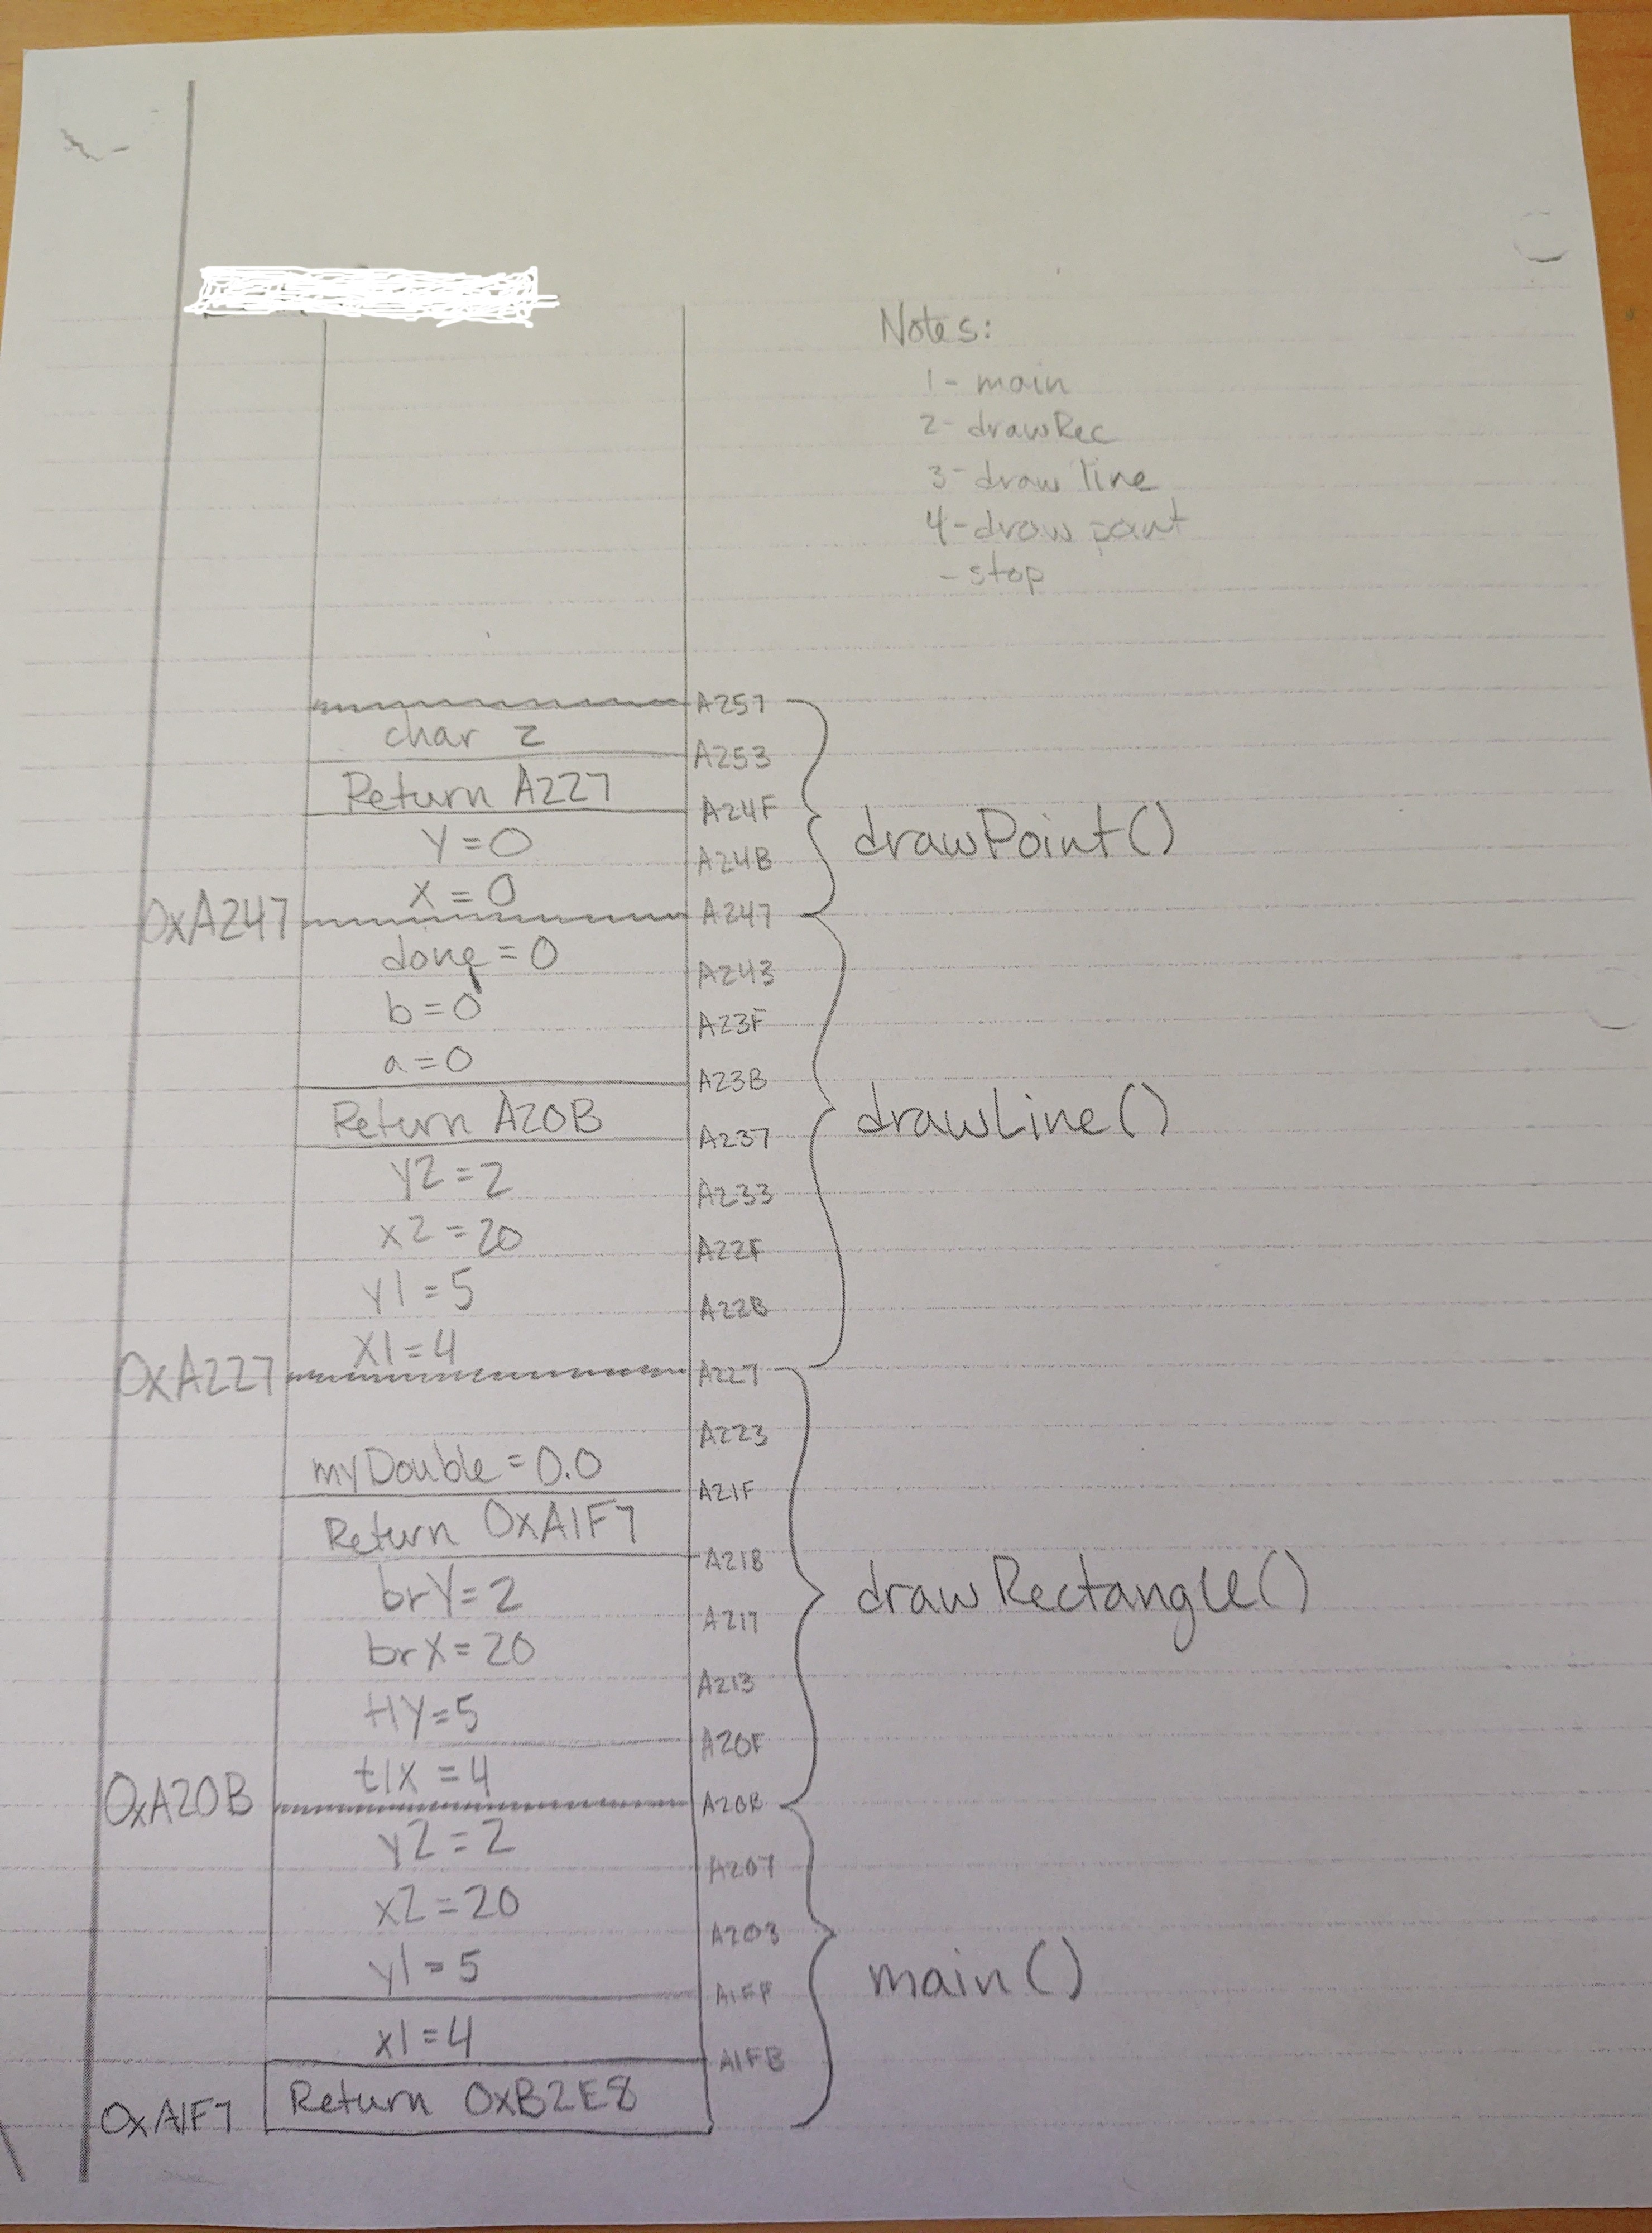 Notes:
1- main
2- drawRec
3- draw line
4- draw point
- stop
A257
char z
A253
Return A227
A24F
y=0
A24B
drawPoint()
x=0
0xA247
A247
done=0
A243
b=0
A23F
a=0
A23B
Return A20B
A237
drawLine()
y2=2
A233
x2=20
A22F
y1=5
A22B
x1=4
0xA227
A227
A223
myDouble=0.0
A21F
Return 0xA1F7
A21B
brY=2
A217
drawRectangle()
brX=20
A213
tlY=5
A20F
tlX=4
0xA20B
A20B
y2=2
A207
x2=20
A203
y1=5
A1FF
main()
x1=4
A1FB
Return 0xB2E8
0xA1F7